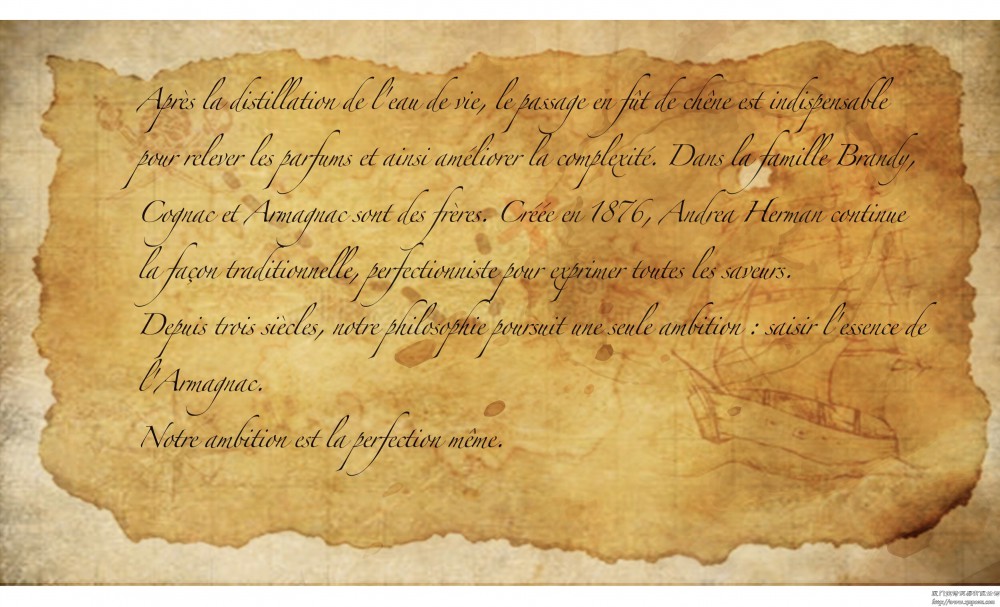 Après la distillation de l'eau de vie, le passage en fût de chêne est indispensable
pour relever les parfums et ainsi améliorer la complexité. Dans la famille Brandy,
Cognac et Armagnac sont des frères. Créée en 1876, Andrea Herman continue
la façon traditionnelle, perfectionniste pour exprimer toutes les saveurs.
Depuis trois siècles, notre philosophie poursuit une seule ambition : saisir l'essence de
l'Armagnac.
Notre ambition est la perfection même.